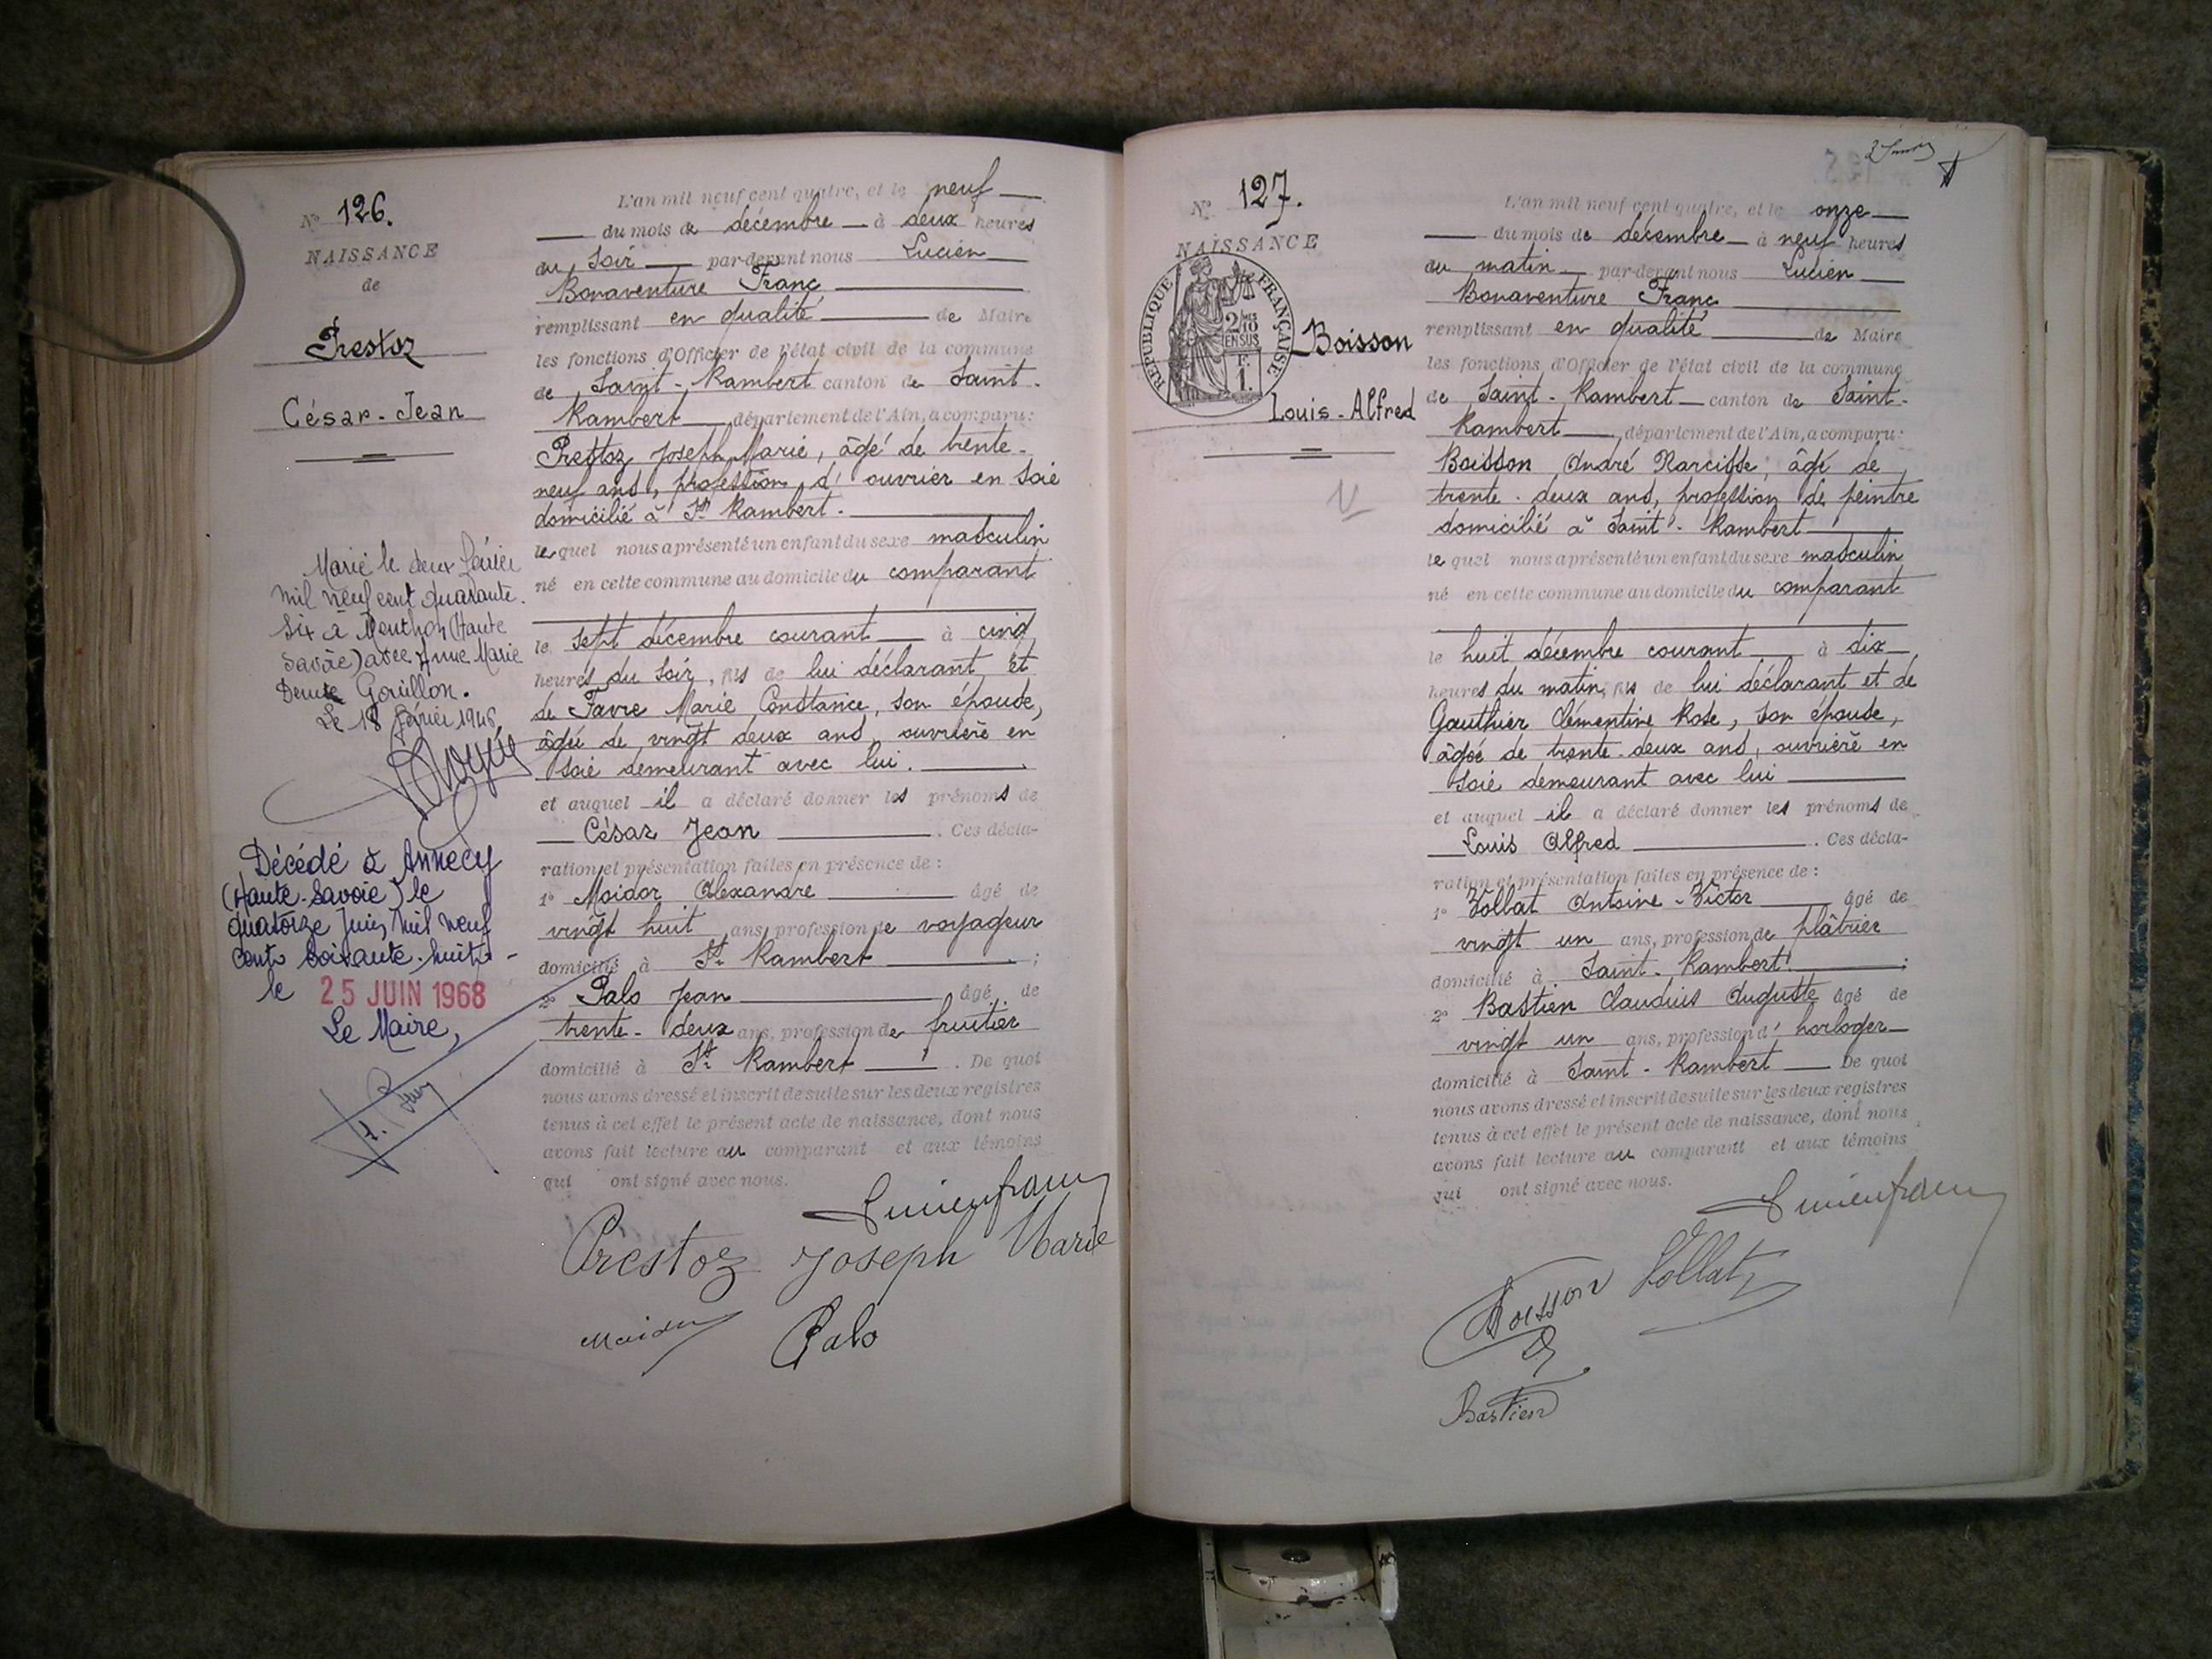 Nº 126.
NAISSANCE
de
Prestoz
César-Jean
Marié le deux février
mil neuf cent quarante.
six à Menthon (Haute
Savoie) avec Anne Marie
Denise Gouillon.
Le 18 février 1946
Décédé à Annecy
(Haute-Savoie) le
quatorze Juin mil neuf
cent soixante-huit -
le 25 JUIN 1968
Le Maire,
L'an mil neuf cent quatre, et le neuf
du mois de décembre à deux heures
du soir par-devant nous Lucien
Bonaventure Franc
remplissant en qualité de Maire
les fonctions d'Officier de l'état civil de la commune
de Saint-Rambert canton de Saint-
Rambert département de l'Ain, a comparu:
Prestoz Joseph Marie, âgé de trente-
neuf ans, profession d'ouvrier en soie
domicilié à St Rambert.
lequel nous a présenté un enfant du sexe masculin
né en cette commune au domicile du comparant
le sept décembre courant à cinq
heures du soir, fils de lui déclarant et
de Favre Marie Constance, son épouse,
âgée de vingt deux ans, ouvrière en
soie demeurant avec lui.
et auquel il a déclaré donner les prénoms de
César Jean. Ces décla-
ration et présentation faites en présence de :
1º Moidor Alexandre âgé de
vingt huit ans, profession de voyageur
domicilié à St Rambert ;
2º Palo Jean âgé de
trente-deux ans, profession de fruitier
domicilié à St Rambert. De quoi
nous avons dressé et inscrit de suite sur les deux registres
tenus à cet effet le présent acte de naissance, dont nous
avons fait lecture au comparant et aux témoins
qui ont signé avec nous.
Lucien franc
Prestoz Joseph Marie
Moidor Palo
Nº 127.
NAISSANCE
RÉPUBLIQUE FRANÇAISE
2/10 EN SUS
F.
1.
Boisson
Louis-Alfred
L'an mil neuf cent quatre, et le onze
du mois de décembre à neuf heures
du matin par-devant nous Lucien
Bonaventure Franc
remplissant en qualité de Maire
les fonctions d'Officier de l'état civil de la commune
de Saint-Rambert canton de Saint-
Rambert département de l'Ain, a comparu:
Boisson André Narcisse, âgé de
trente-deux ans, profession de peintre
domicilié à Saint-Rambert
lequel nous a présenté un enfant du sexe masculin
né en cette commune au domicile du comparant
le huit décembre courant à dix
heures du matin, fils de lui déclarant et de
Gauthier Clémentine Rose, son épouse,
âgée de trente-deux ans, ouvrière en
soie demeurant avec lui
et auquel il a déclaré donner les prénoms de
Louis Alfred. Ces décla-
ration et présentation faites en présence de :
1º Vollat Antoine-Victor âgé de
vingt un ans, profession de plâtrier
domicilié à Saint-Rambert ;
2º Bastien Claudius Auguste âgé de
vingt un ans, profession d'horloger
domicilié à Saint-Rambert De quoi
nous avons dressé et inscrit de suite sur les deux registres
tenus à cet effet le présent acte de naissance, dont nous
avons fait lecture au comparant et aux témoins
qui ont signé avec nous.
Lucien franc
Boisson Vollat
Bastien